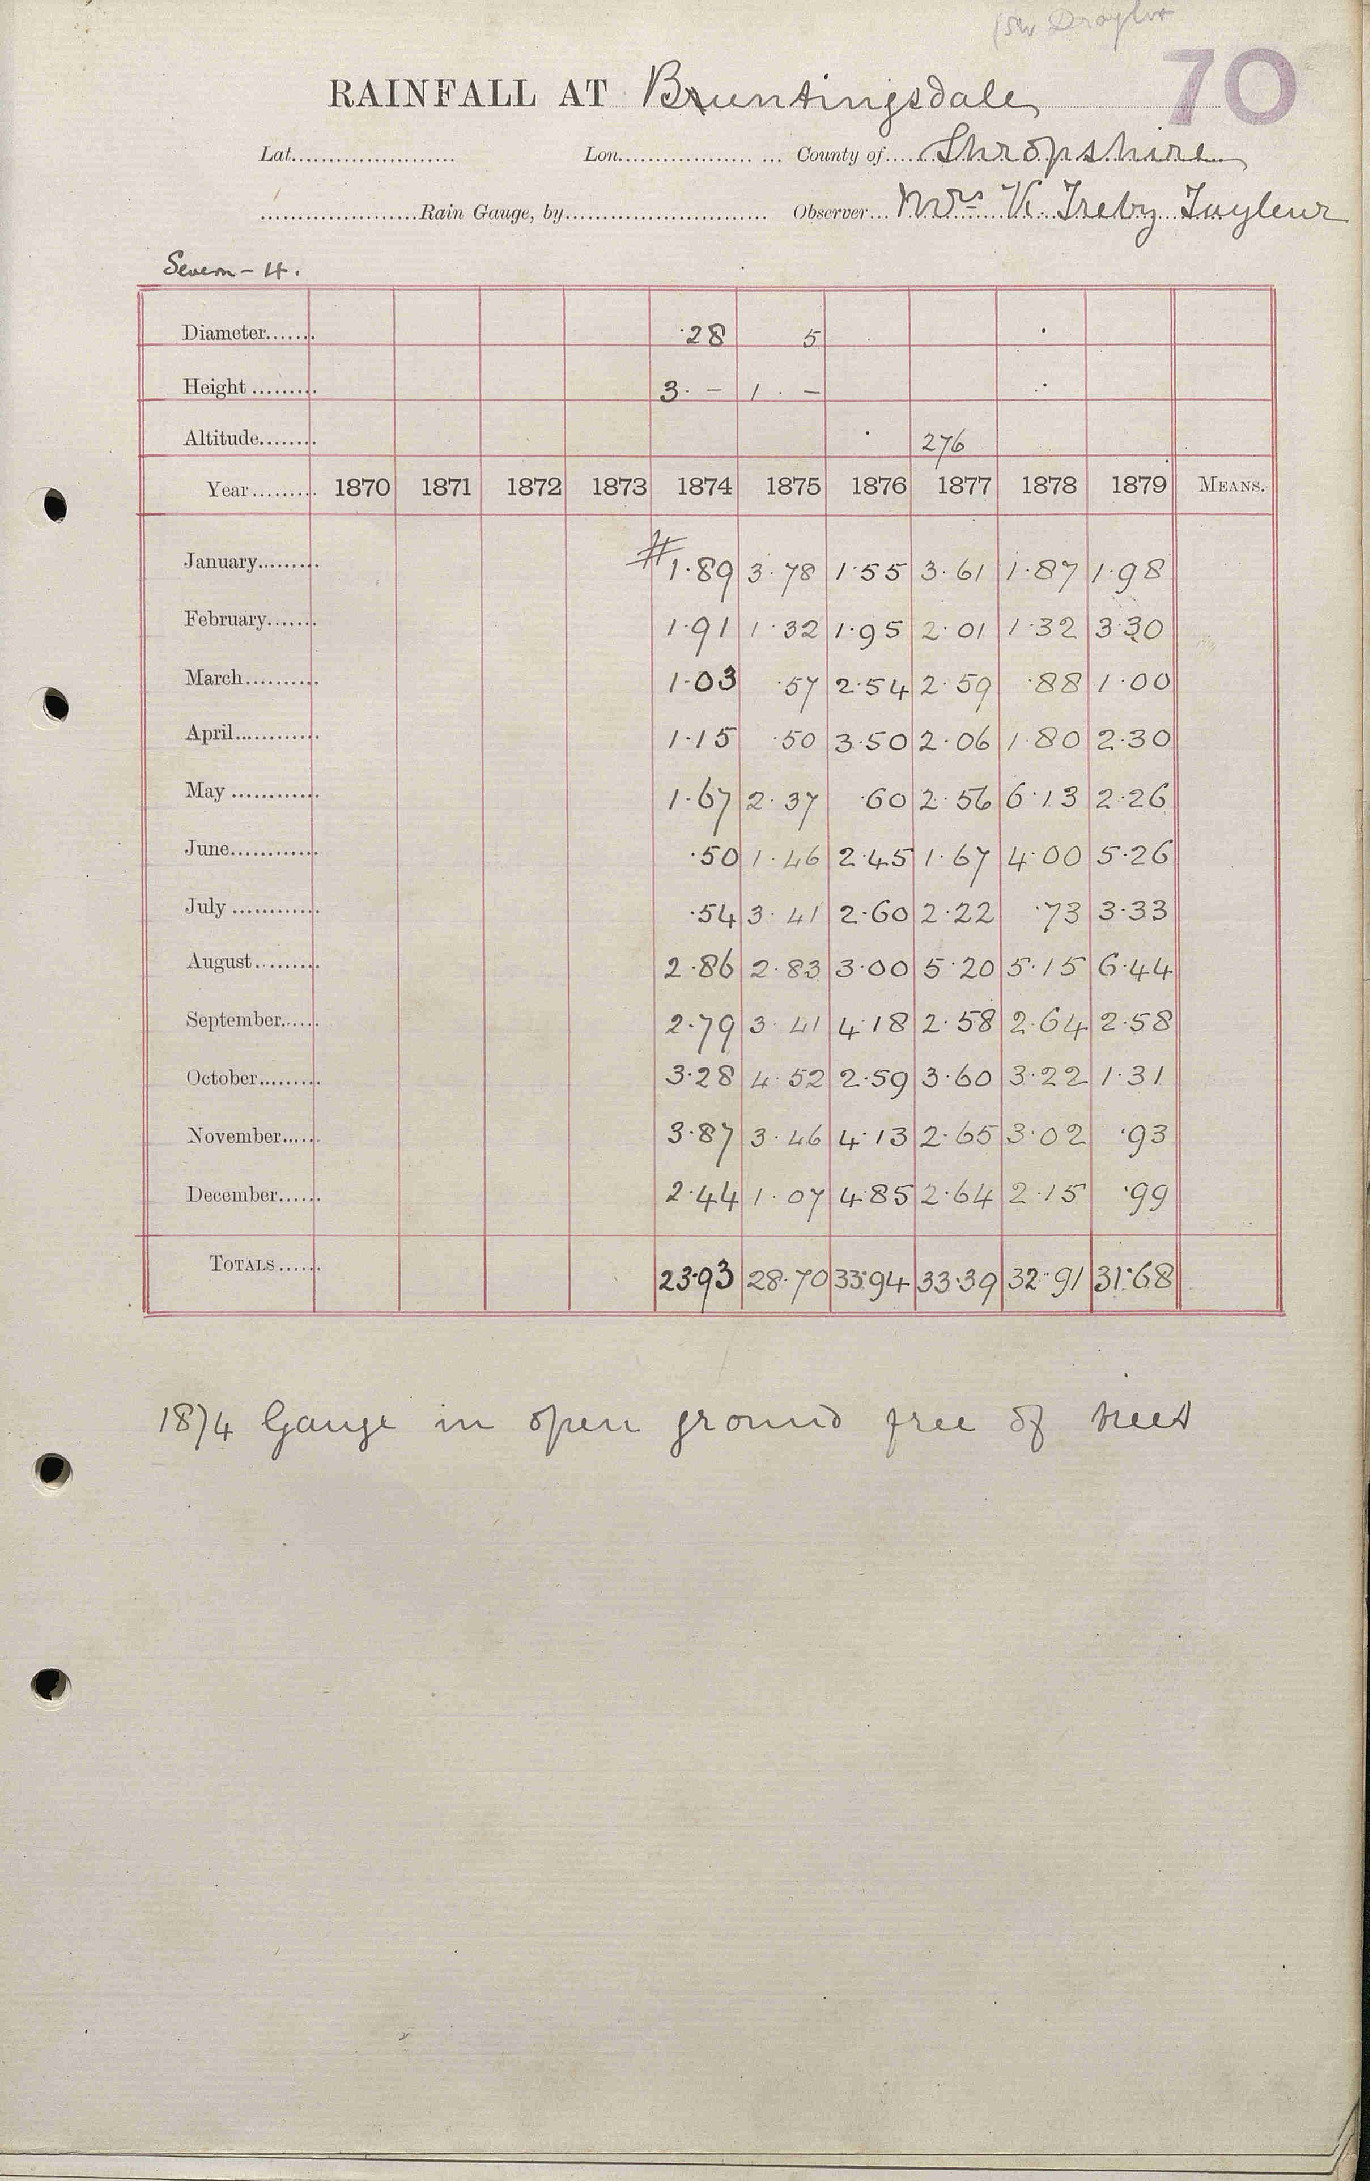 70
RAINFALL AT Bruntingsdale
Lat. Lon. County of Shropshire
Rain Gauge, by Observer Mrs V. Treby Tayleur
Severn - 4.
Diameter 28 5
Height 3 - 1 -
Altitude 276
Year 1870 1871 1872 1873 1874 1875 1876 1877 1878 1879 MEANS.
January # 1.89 3.78 1.55 3.61 1.87 1.98
February 1.91 1.32 1.95 2.01 1.32 3.30
March 1.03 .57 2.54 2.59 .88 1.00
April 1.15 .50 3.50 2.06 1.80 2.30
May 1.67 2.37 .60 2.56 6.13 2.26
June .50 1.46 2.45 1.67 4.00 5.26
July .54 3.41 2.60 2.22 .73 3.33
August 2.86 2.83 3.00 5.20 5.15 6.44
September 2.79 3.41 4.18 2.58 2.64 2.58
October 3.28 4.52 2.59 3.60 3.22 1.31
November 3.87 3.46 4.13 2.65 3.02 .93
December 2.44 1.07 4.85 2.64 2.15 .99
TOTALS 23.93 28.70 33.94 33.39 32.91 31.68
1874 Gauge in open ground free of trees